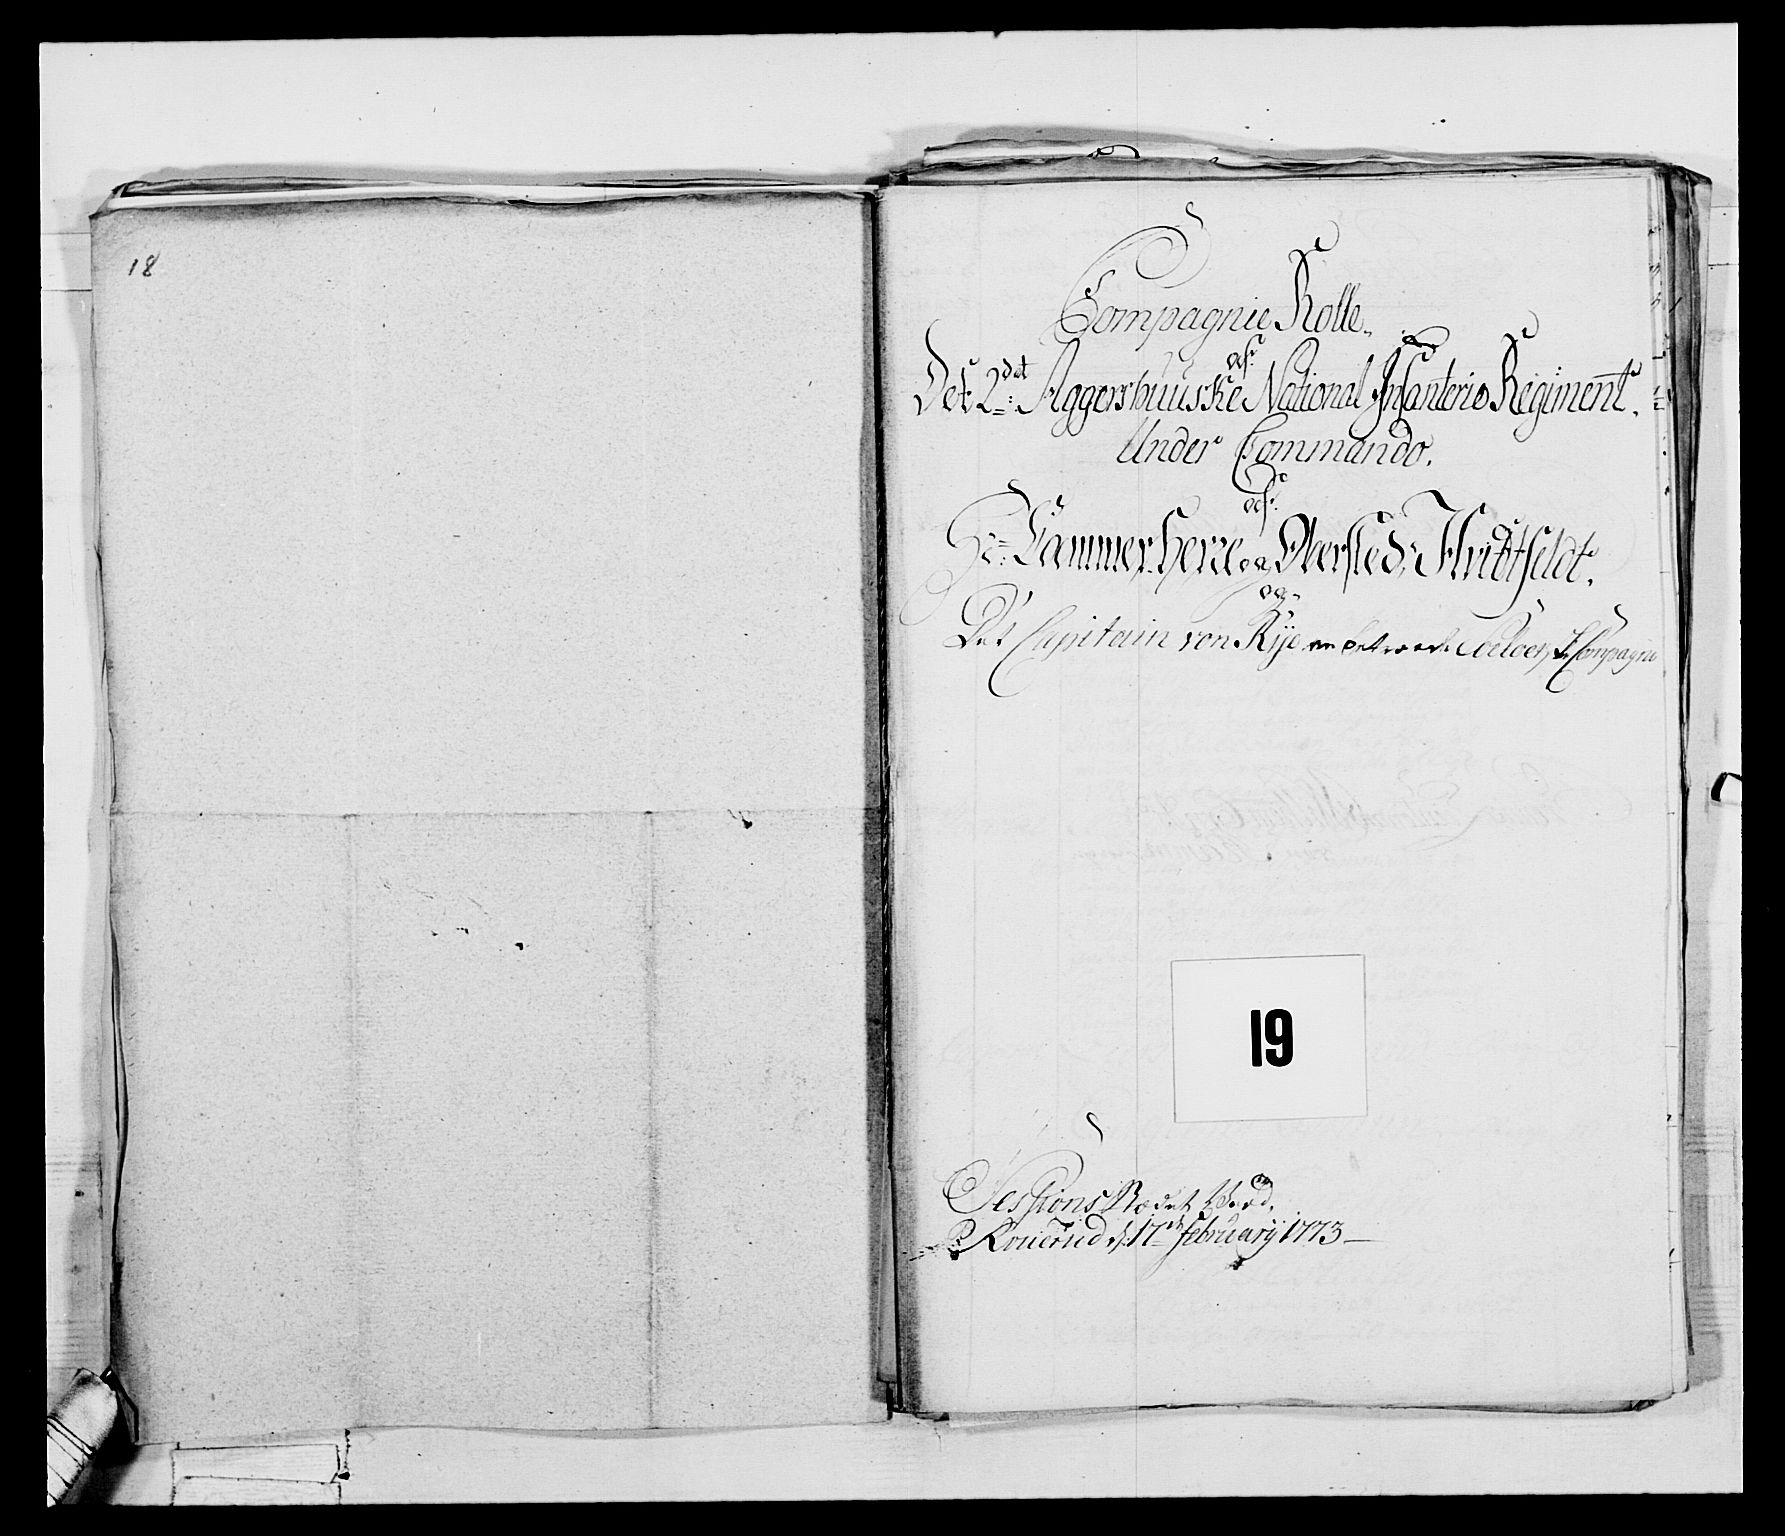 18
Compagnie Rolle.
af.
Det 2det Aggershuuske National Infanterie Regiment.
Under Commando.
af.
Hr: Cammer-Herre og Oberste d. Hvidtfeldt.
og
Det Capitain von Rye anbetroede Compagnie
19
Sessions Rædet Ved.
d. 17de february 1773